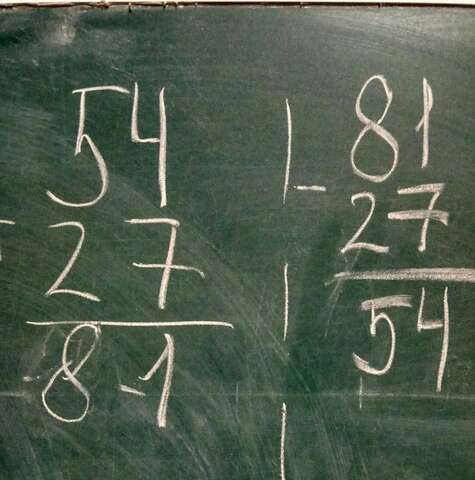 54
- 27
8-1
- 81
27
54